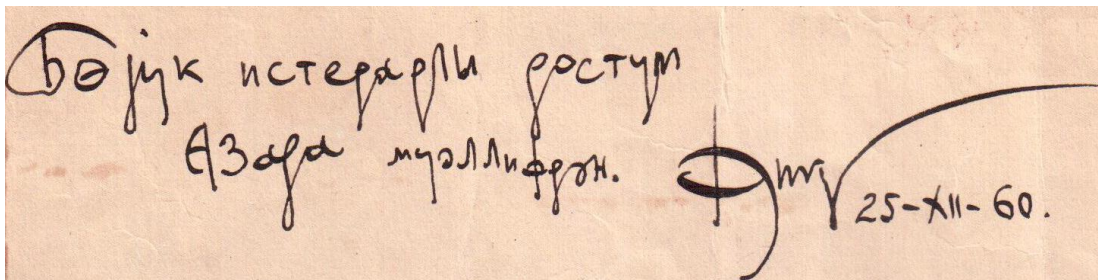 Бөјүк истедадлы достум
Азада муәллифдән.
25-XII-60.